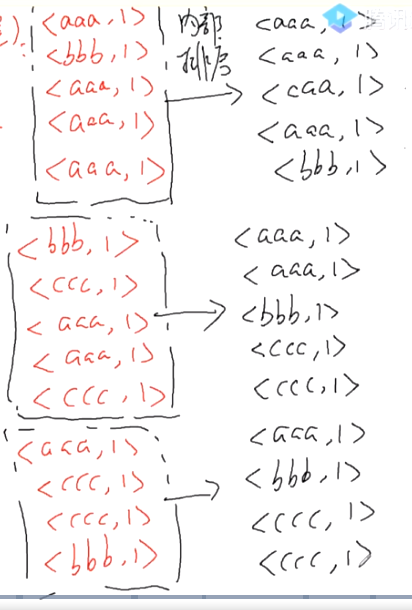 <aaa,1>
<bbb,1>
<aaa,1>
<aaa,1>
<aaa,1>
内部
排序
<aaa,1>
<aaa,1>
<caa,1>
<aaa,1>
<bbb,1>
<bbb,1>
<ccc,1>
<aaa,1>
<aaa,1>
<ccc,1>
<aaa,1>
<aaa,1>
<bbb,1>
<ccc,1>
<ccc,1>
<aaa,1>
<ccc,1>
<ccc,1>
<bbb,1>
<aaa,1>
<bbb,1>
<ccc,1>
<ccc,1>